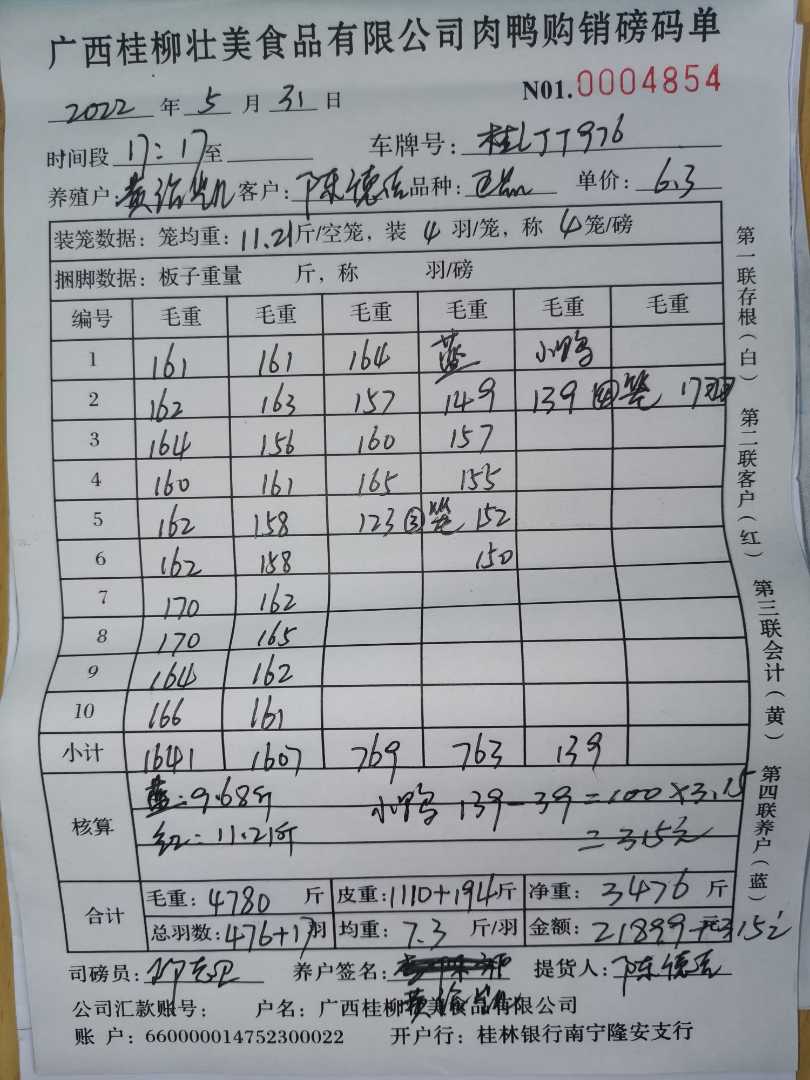 广西桂柳壮美食品有限公司肉鸭购销磅码单
2022 年 5 月 31 日 N01.0004854
时间段 17:17 至 车牌号: 桂LJT976
养殖户: 客户: 陈德 品种: 单价: 6.3
装笼数据: 笼均重: 11.21 斤/空笼, 装 4 羽/笼, 称 4 笼/磅
捆脚数据: 板子重量 斤, 称 羽/磅
编号 毛重 毛重 毛重 毛重 毛重 毛重
1 161 161 164 蓝 小鸭
2 162 163 157 149 139 ④笼 17羽
3 164 156 160 157
4 160 161 165 155
5 162 158 123 ③笼 152
6 162 158 150
7 170 162
8 170 165
9 164 162
10 166 161
小计 1641 1607 769 763 139
核算 蓝:9.68斤 小鸭 139-39=100×3.15
红:11.21斤 =315元
合计 毛重: 4780 斤 皮重: 1110+194 斤 净重: 3476 斤
总羽数: 476+17 羽 均重: 7.3 斤/羽 金额: 21899 元 315元
司磅员: 养户签名: 提货人: 陈德
公司汇款账号: 户名: 广西桂柳壮美食品有限公司
账 户: 660000014752300022 开户行: 桂林银行南宁隆安支行
第一联存根(白) 第二联客户(红) 第三联会计(黄) 第四联养户(蓝)